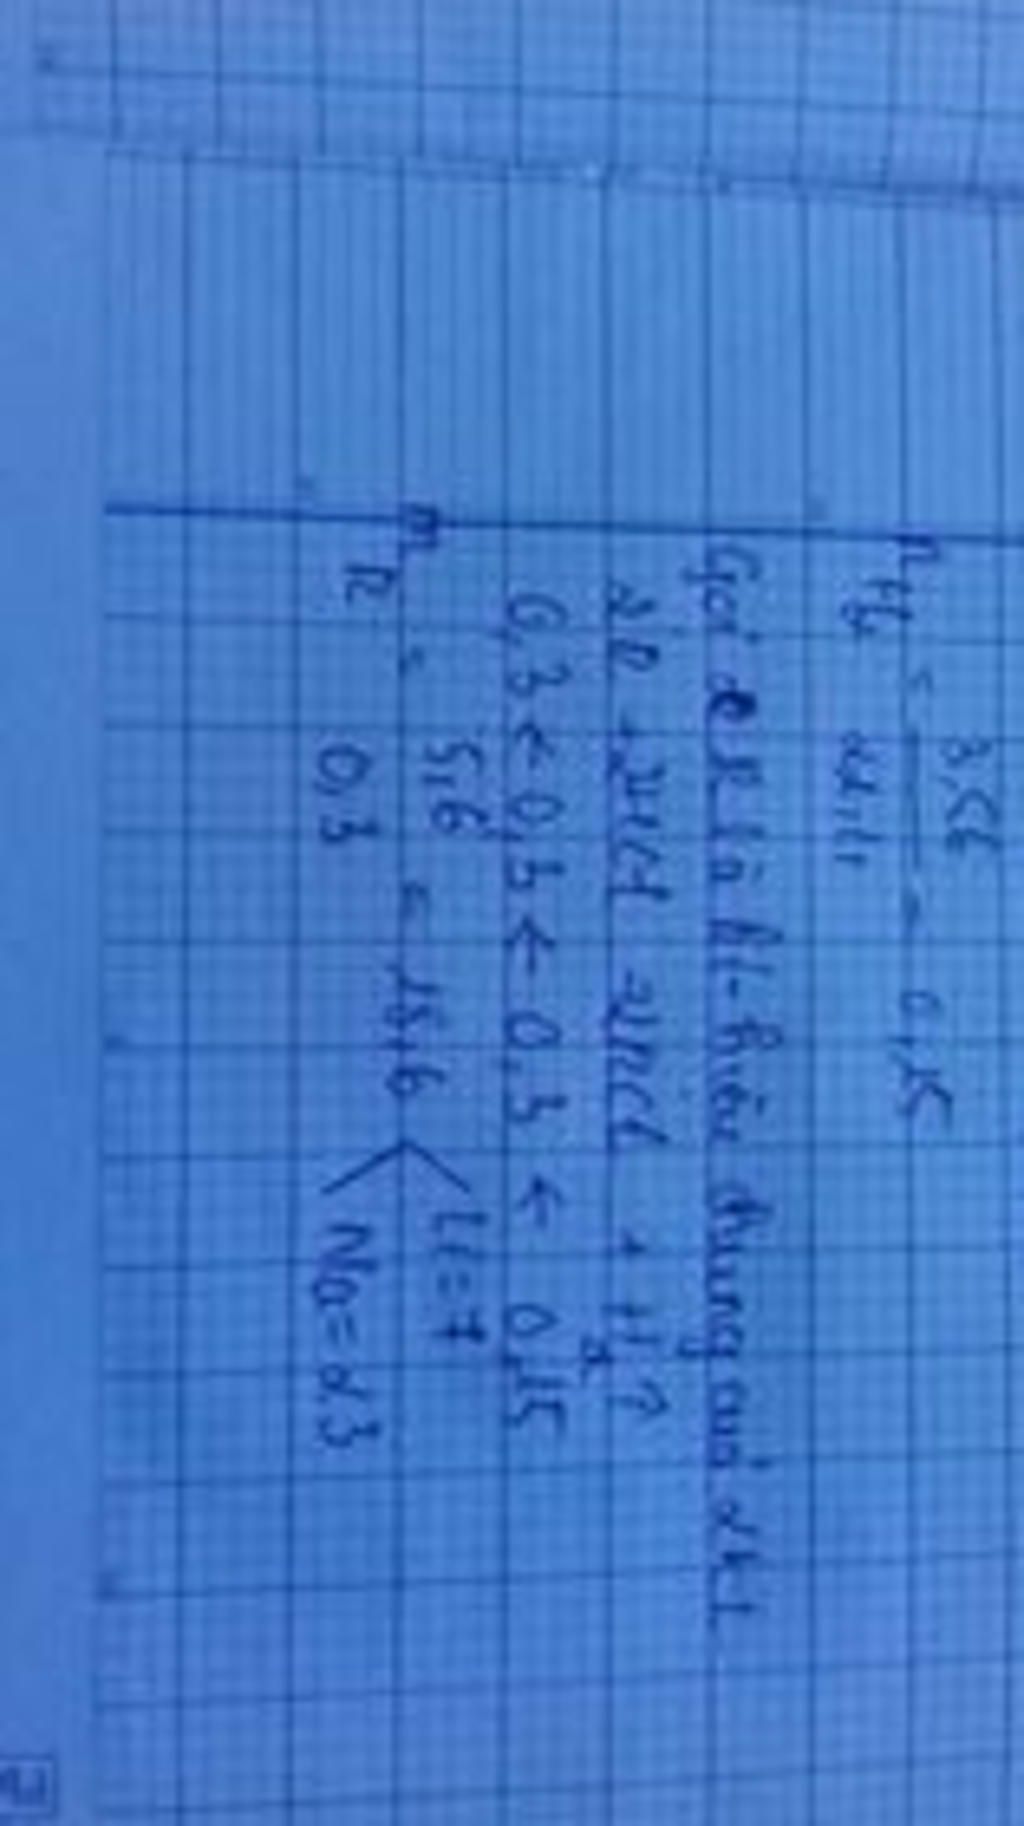 n H₂ = 3,36 / 22,4 = 0,15
Gọi R là kí hiệu chung của 2KL
2R + 2HCl = 2RCl + H₂↑
0,3 ← 0,3 ← 0,3 ← 0,15
R = 5,6 / 0,3 = 18,6 < Li = 7
Na = 23